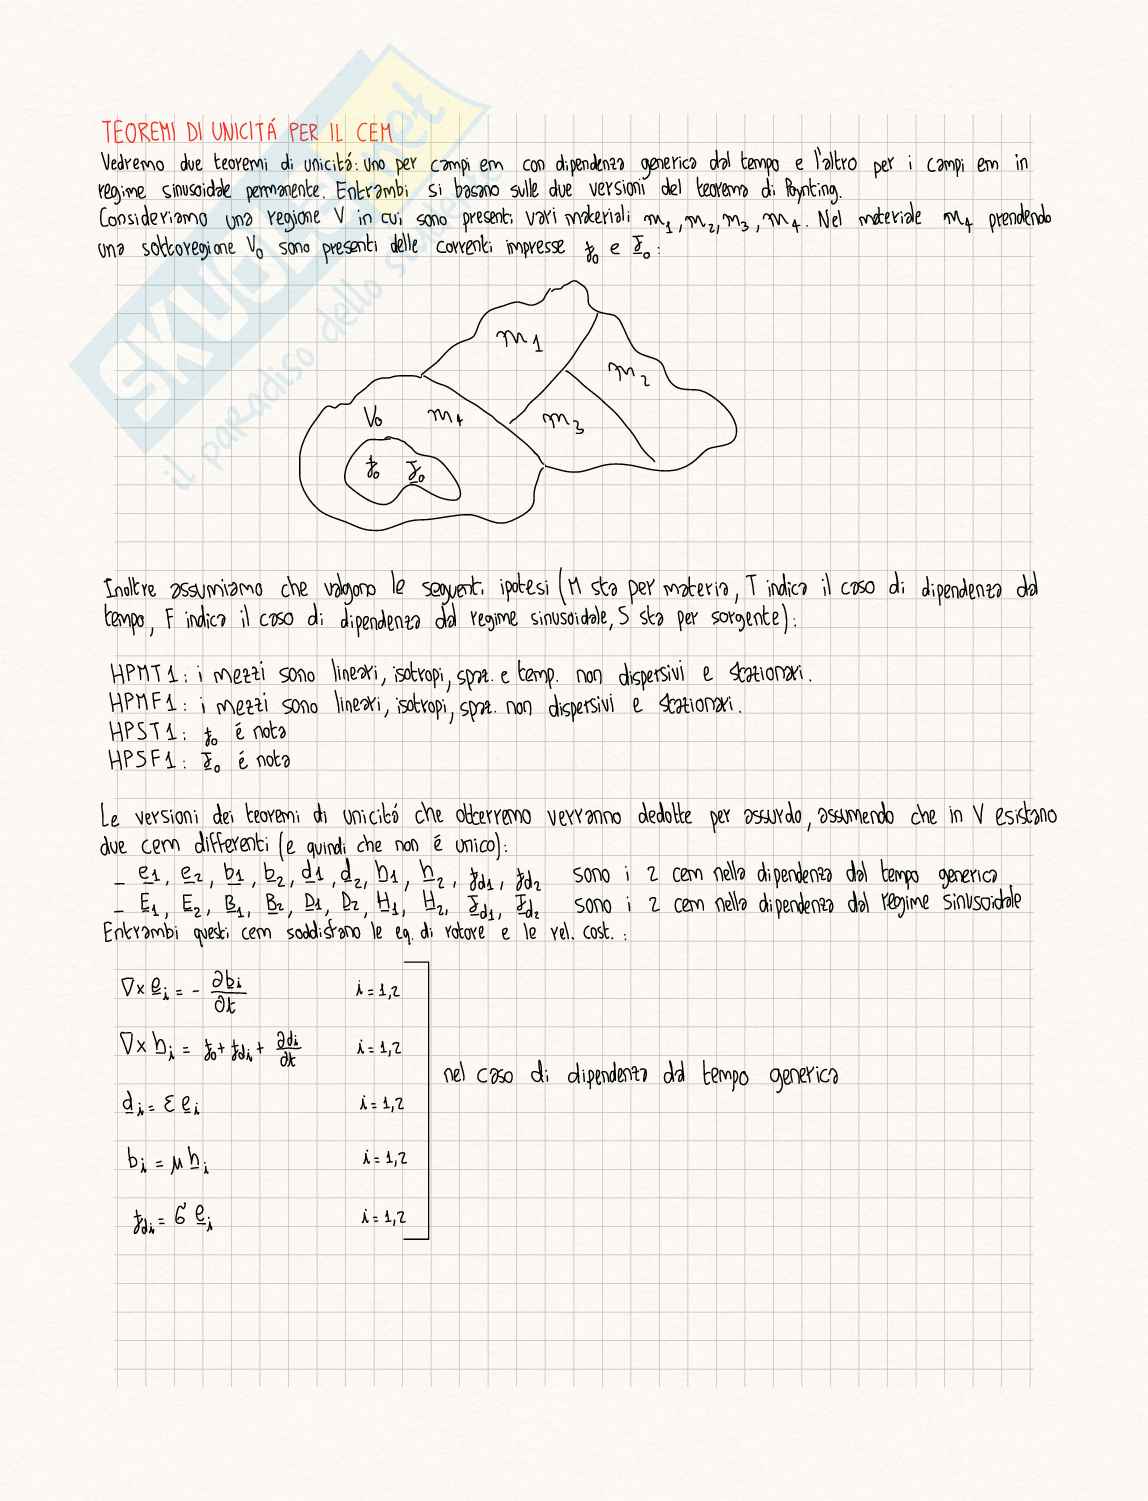 TEOREMI DI UNICITÁ PER IL CEM
Vedremo due teoremi di unicitá: uno per campi em con dipendenza generica dal tempo e l'altro per i campi em in
regime sinusoidale permanente. Entrambi si basano sulle due versioni del teorema di Poynting.
Consideriamo una regione V in cui sono presenti vari materiali m1, m2, m3, m4. Nel materiale m4 prendendo
una sottoregione V0 sono presenti delle correnti impresse j0 e J0:
m1
m2
V0 m4 m3
j0 J0
Inoltre assumiamo che valgono le seguenti ipotesi (M sta per materia, T indica il caso di dipendenza dal
tempo, F indica il caso di dipendenza dal regime sinusoidale, S sta per sorgente):
HPMT1: i mezzi sono lineari, isotropi, spaz. e temp. non dispersivi e stazionari.
HPMF1: i mezzi sono lineari, isotropi, spaz. non dispersivi e stazionari.
HPST1: j0 é nota
HPSF1: J0 é nota
Le versioni dei teoremi di unicitá che otterremo verranno dedotte per assurdo, assumendo che in V esistano
due cem differenti (e quindi che non é unico):
- e1, e2, b1, b2, d1, d2, h1, h2, jd1, jd2 sono i 2 cem nella dipendenza dal tempo generica
- E1, E2, B1, B2, D1, D2, H1, H2, Jd1, Jd2 sono i 2 cem nella dipendenza dal regime sinusoidale
Entrambi questi cem soddisfano le eq. di rotore e le rel. cost.:
∇× ei = - ∂bi/∂t i=1,2
∇× hi = j0 + jdi + ∂di/∂t i=1,2
nel caso di dipendenza dal tempo generica
di = ε ei i=1,2
bi = μ hi i=1,2
jdi = σ ei i=1,2
SKUOLA.net
il paradiso dello studente